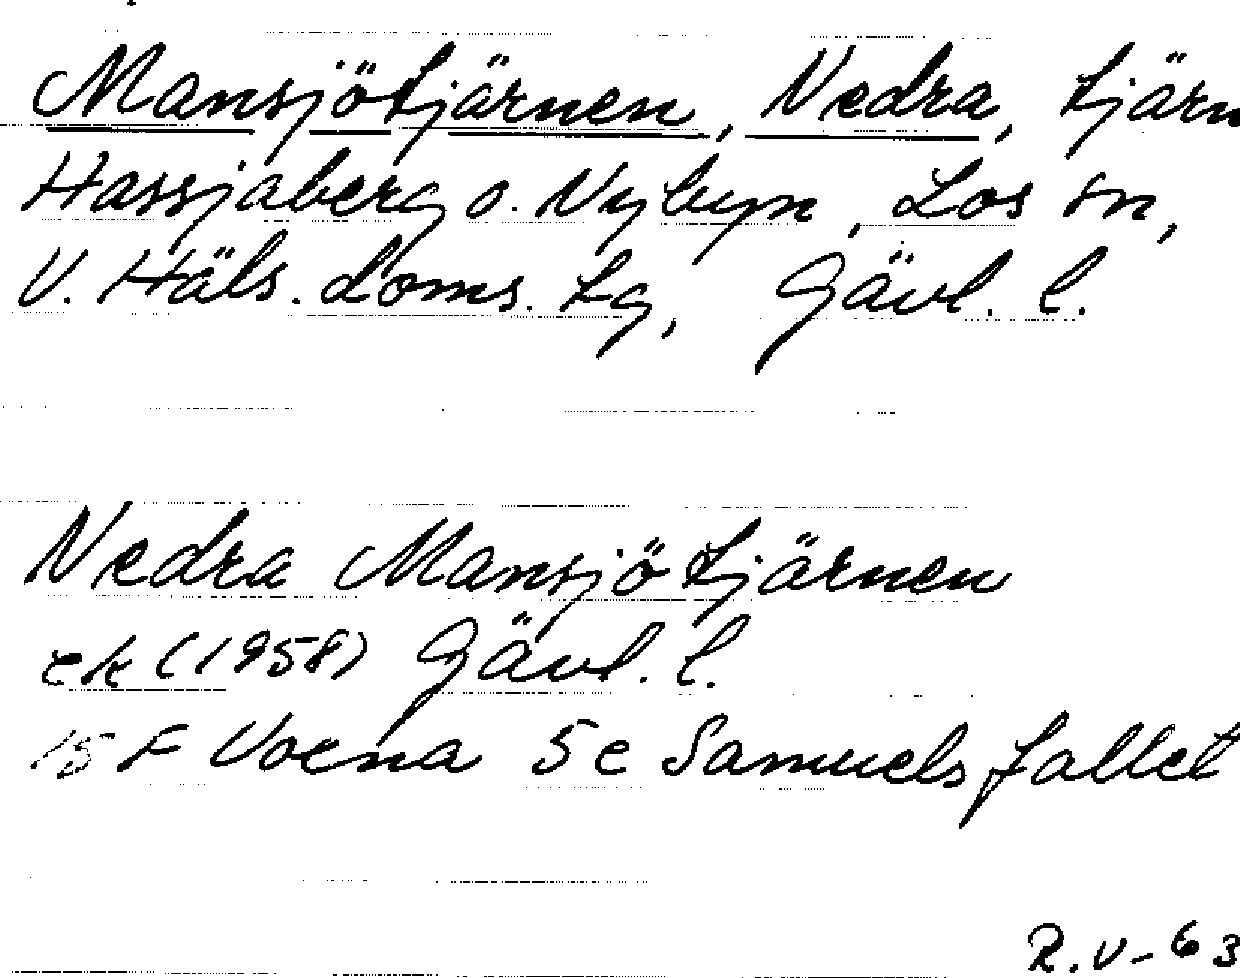 Mansjötjärnen, Nedra, tjärn
Hassjaberg o. Nybyn, Los sn,
V. Häls. doms. tg, Gävl. l.
Nedra Mansjötjärnen
ek (1958) Gävl. l.
15 F Voxna 5 c Samuelsfallet
R.V-63